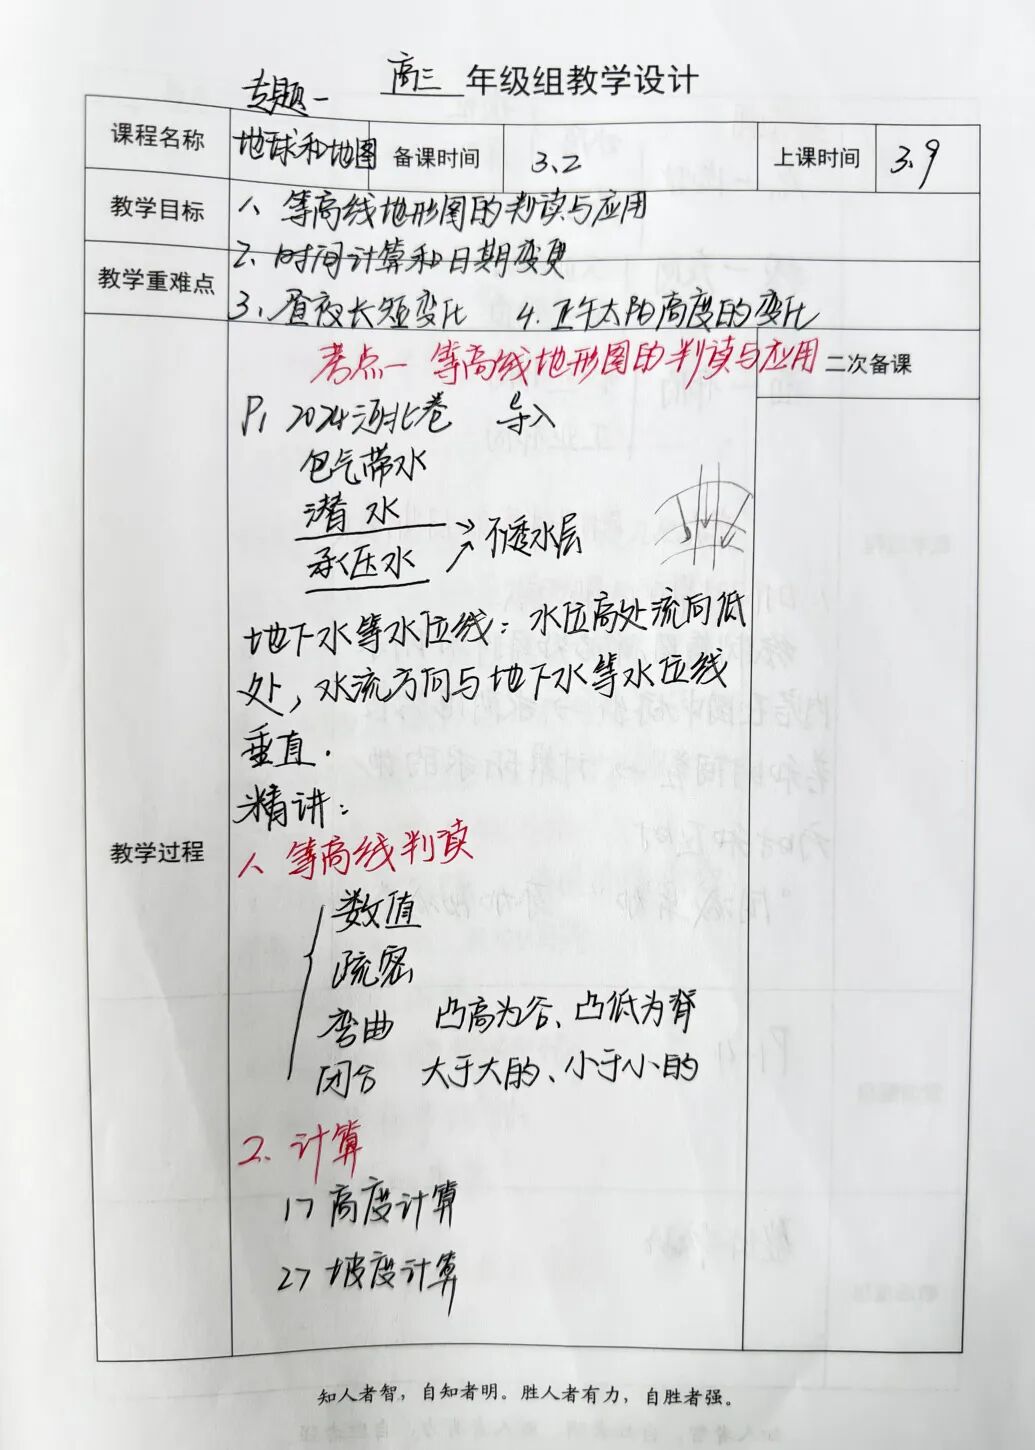 高三 年级组教学设计
专题一
课程名称 地球和地图 备课时间 3.2 上课时间 3.9
教学目标 1、等高线地形图的判读与应用
2、时间计算和日期变更
教学重难点
3、昼夜长短变化 4.正午太阳高度的变化
考点一 等高线地形图的判读与应用 二次备课
P1 2024河北卷 导入
包气带水
潜水
承压水 → 不透水层
地下水等水位线：水位高处流向低
处，水流方向与地下水等水位线
垂直.
精讲：
教学过程
1、等高线判读
数值
疏密
弯曲 凸高为谷、凸低为脊
闭合 大于大的、小于小的
2、计算
1> 高度计算
2> 坡度计算
知人者智，自知者明。胜人者有力，自胜者强。